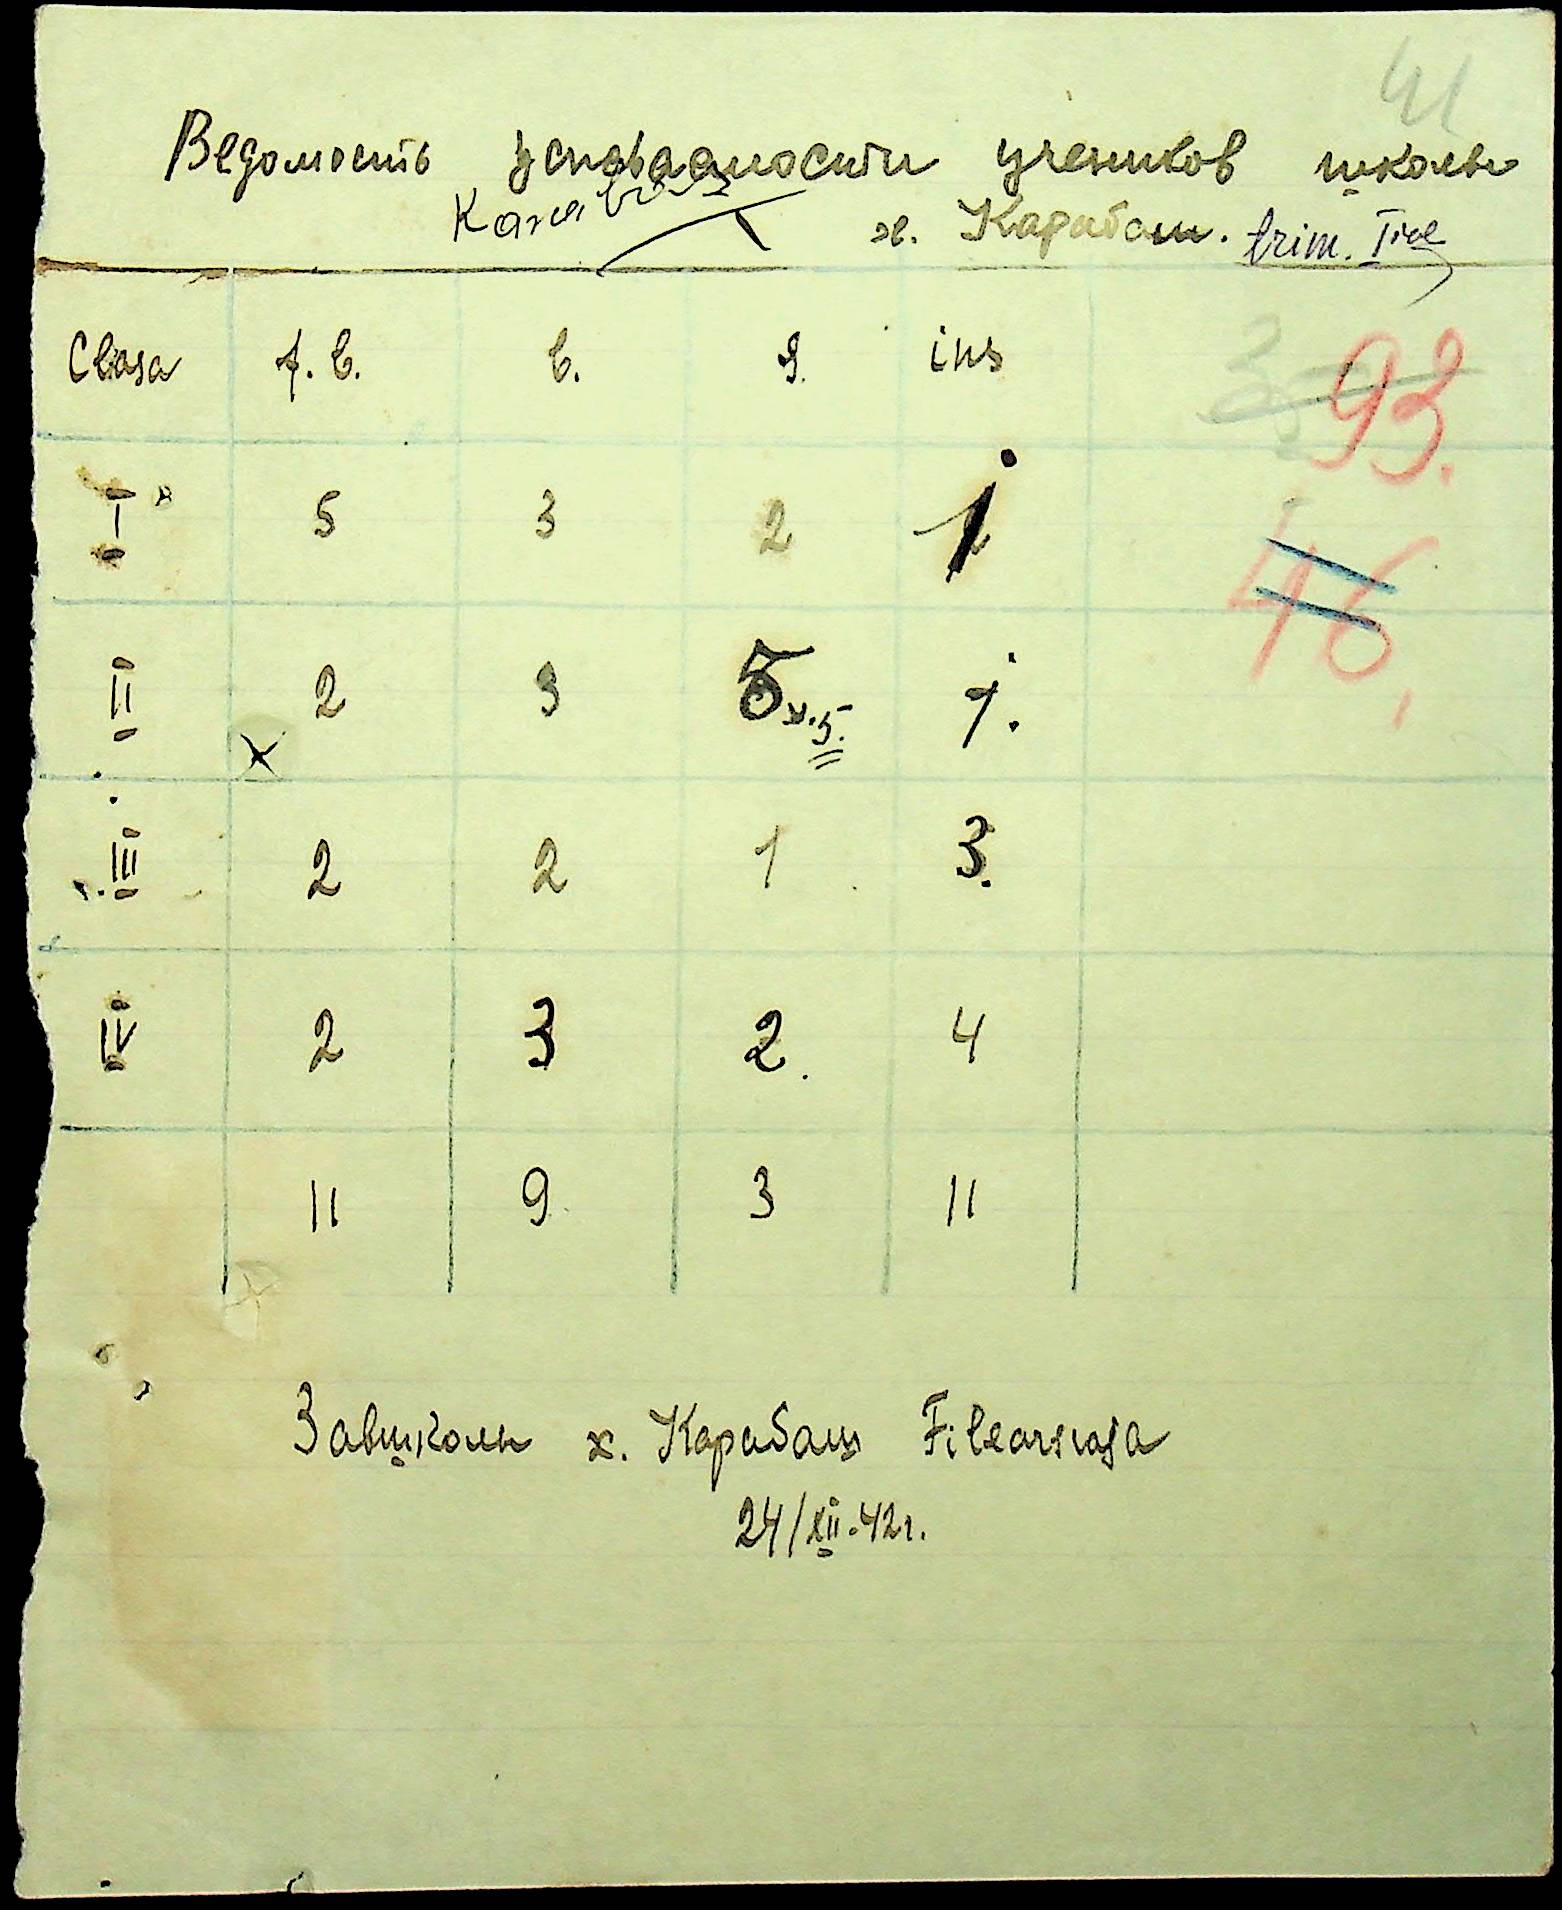 41
Ведомость успеваемости учеников школы
х. Карабаш. trim. I
Clasa f. b. b. s. ins
93.
I 5 3 2
46.
II 2 3 5 1.
III 2 2 1 3.
IV 2 3 2. 4
11 9 3 11
Завшколы х. Карабаш
24/XII-42г.